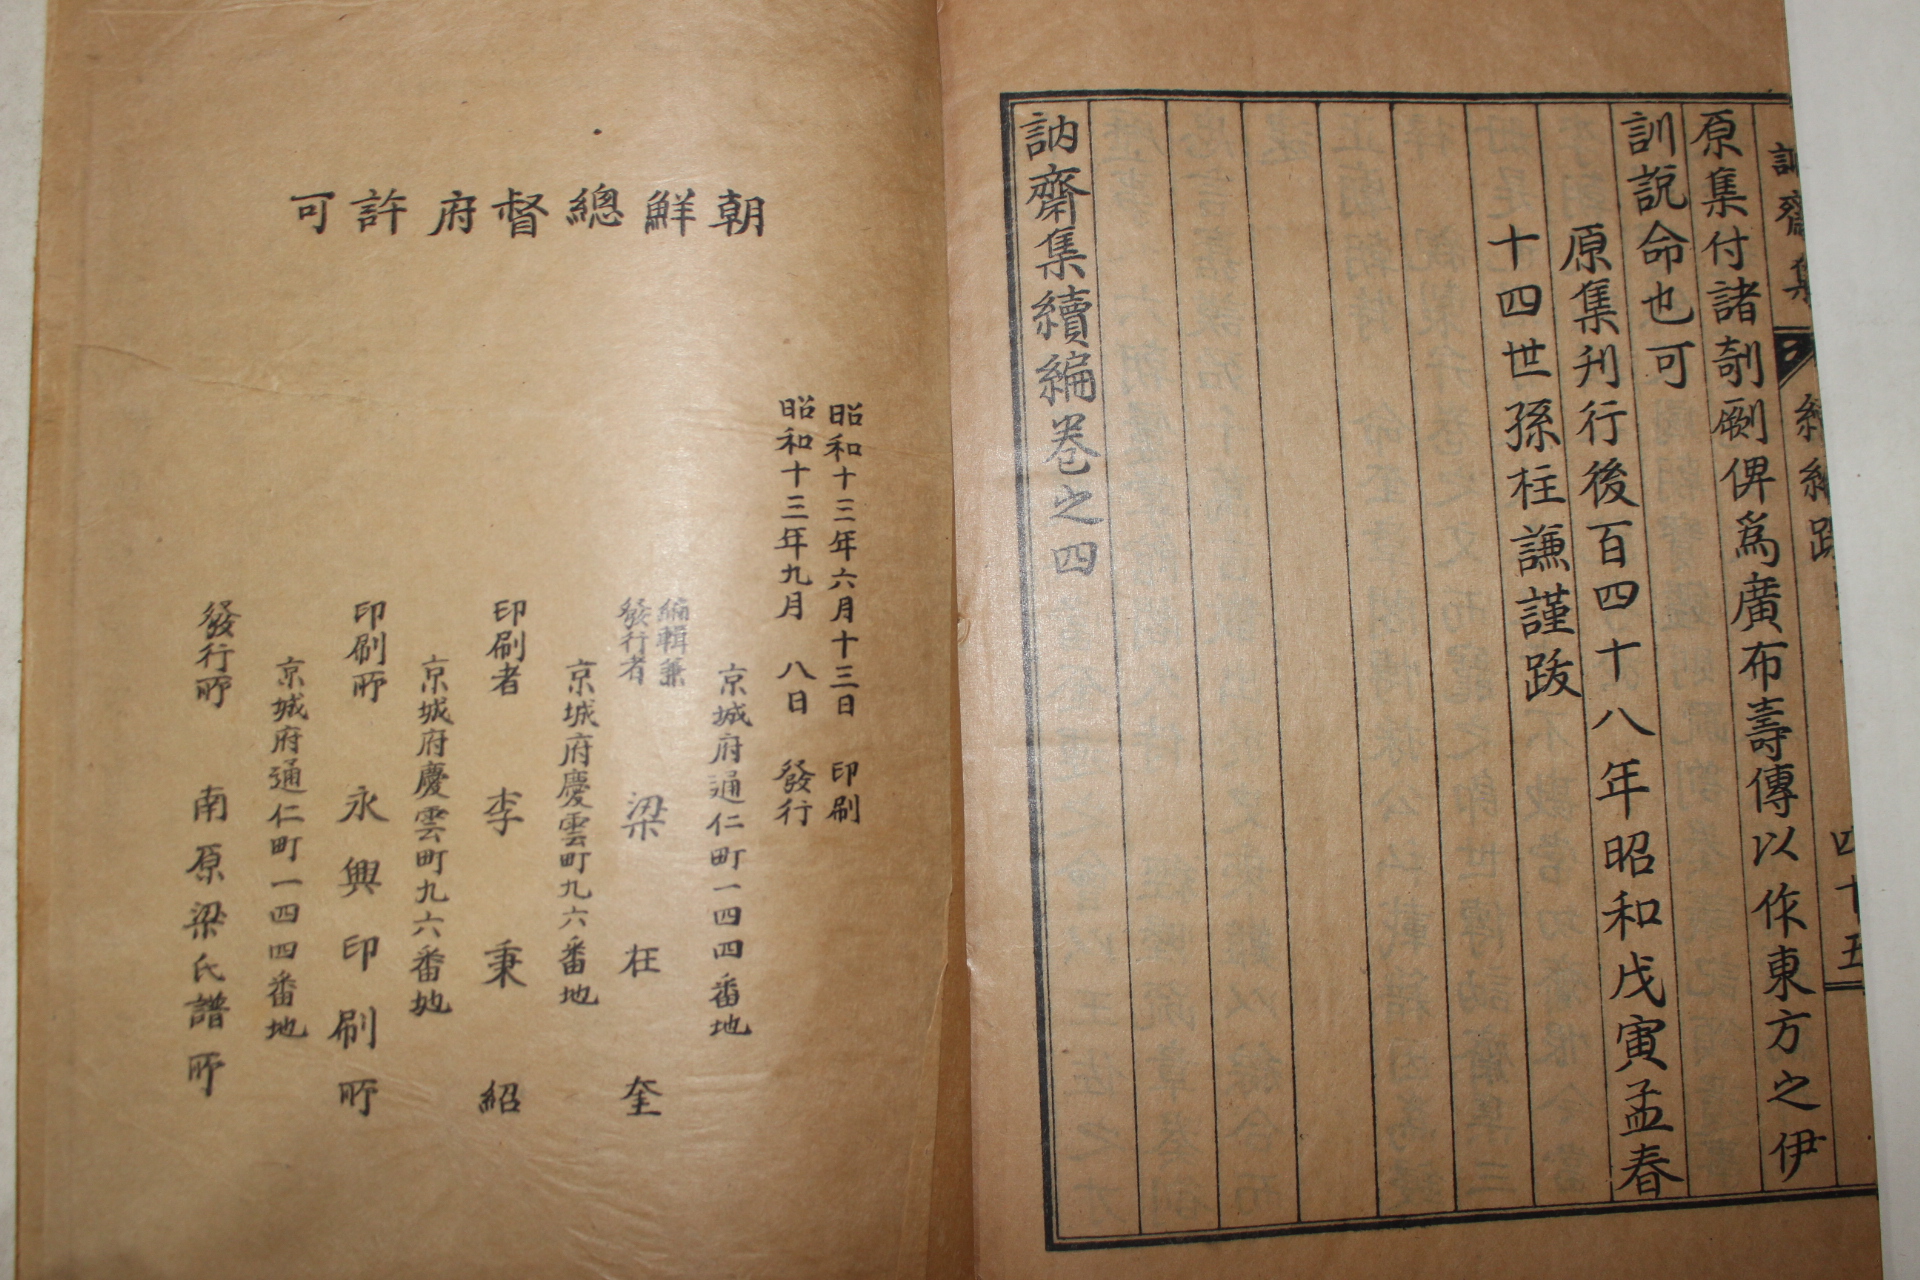 訥齋集
四十五
原集付諸剞劂俾爲廣布壽傳以作東方之伊
訓說命也可
原集刋行後百四十八年昭和戊寅孟春
十四世孫柱謙謹跋
訥齋集續編卷之四
朝鮮總督府許可
昭和十三年六月十三日 印刷
昭和十三年九月 八日 發行
京城府通仁町一四四番地
編輯兼
發行者 梁 柱 奎
京城府慶雲町九六番地
印刷者 李 秉 紹
京城府慶雲町九六番地
印刷所 永興印刷所
京城府通仁町一四四番地
發行所 南原梁氏譜所